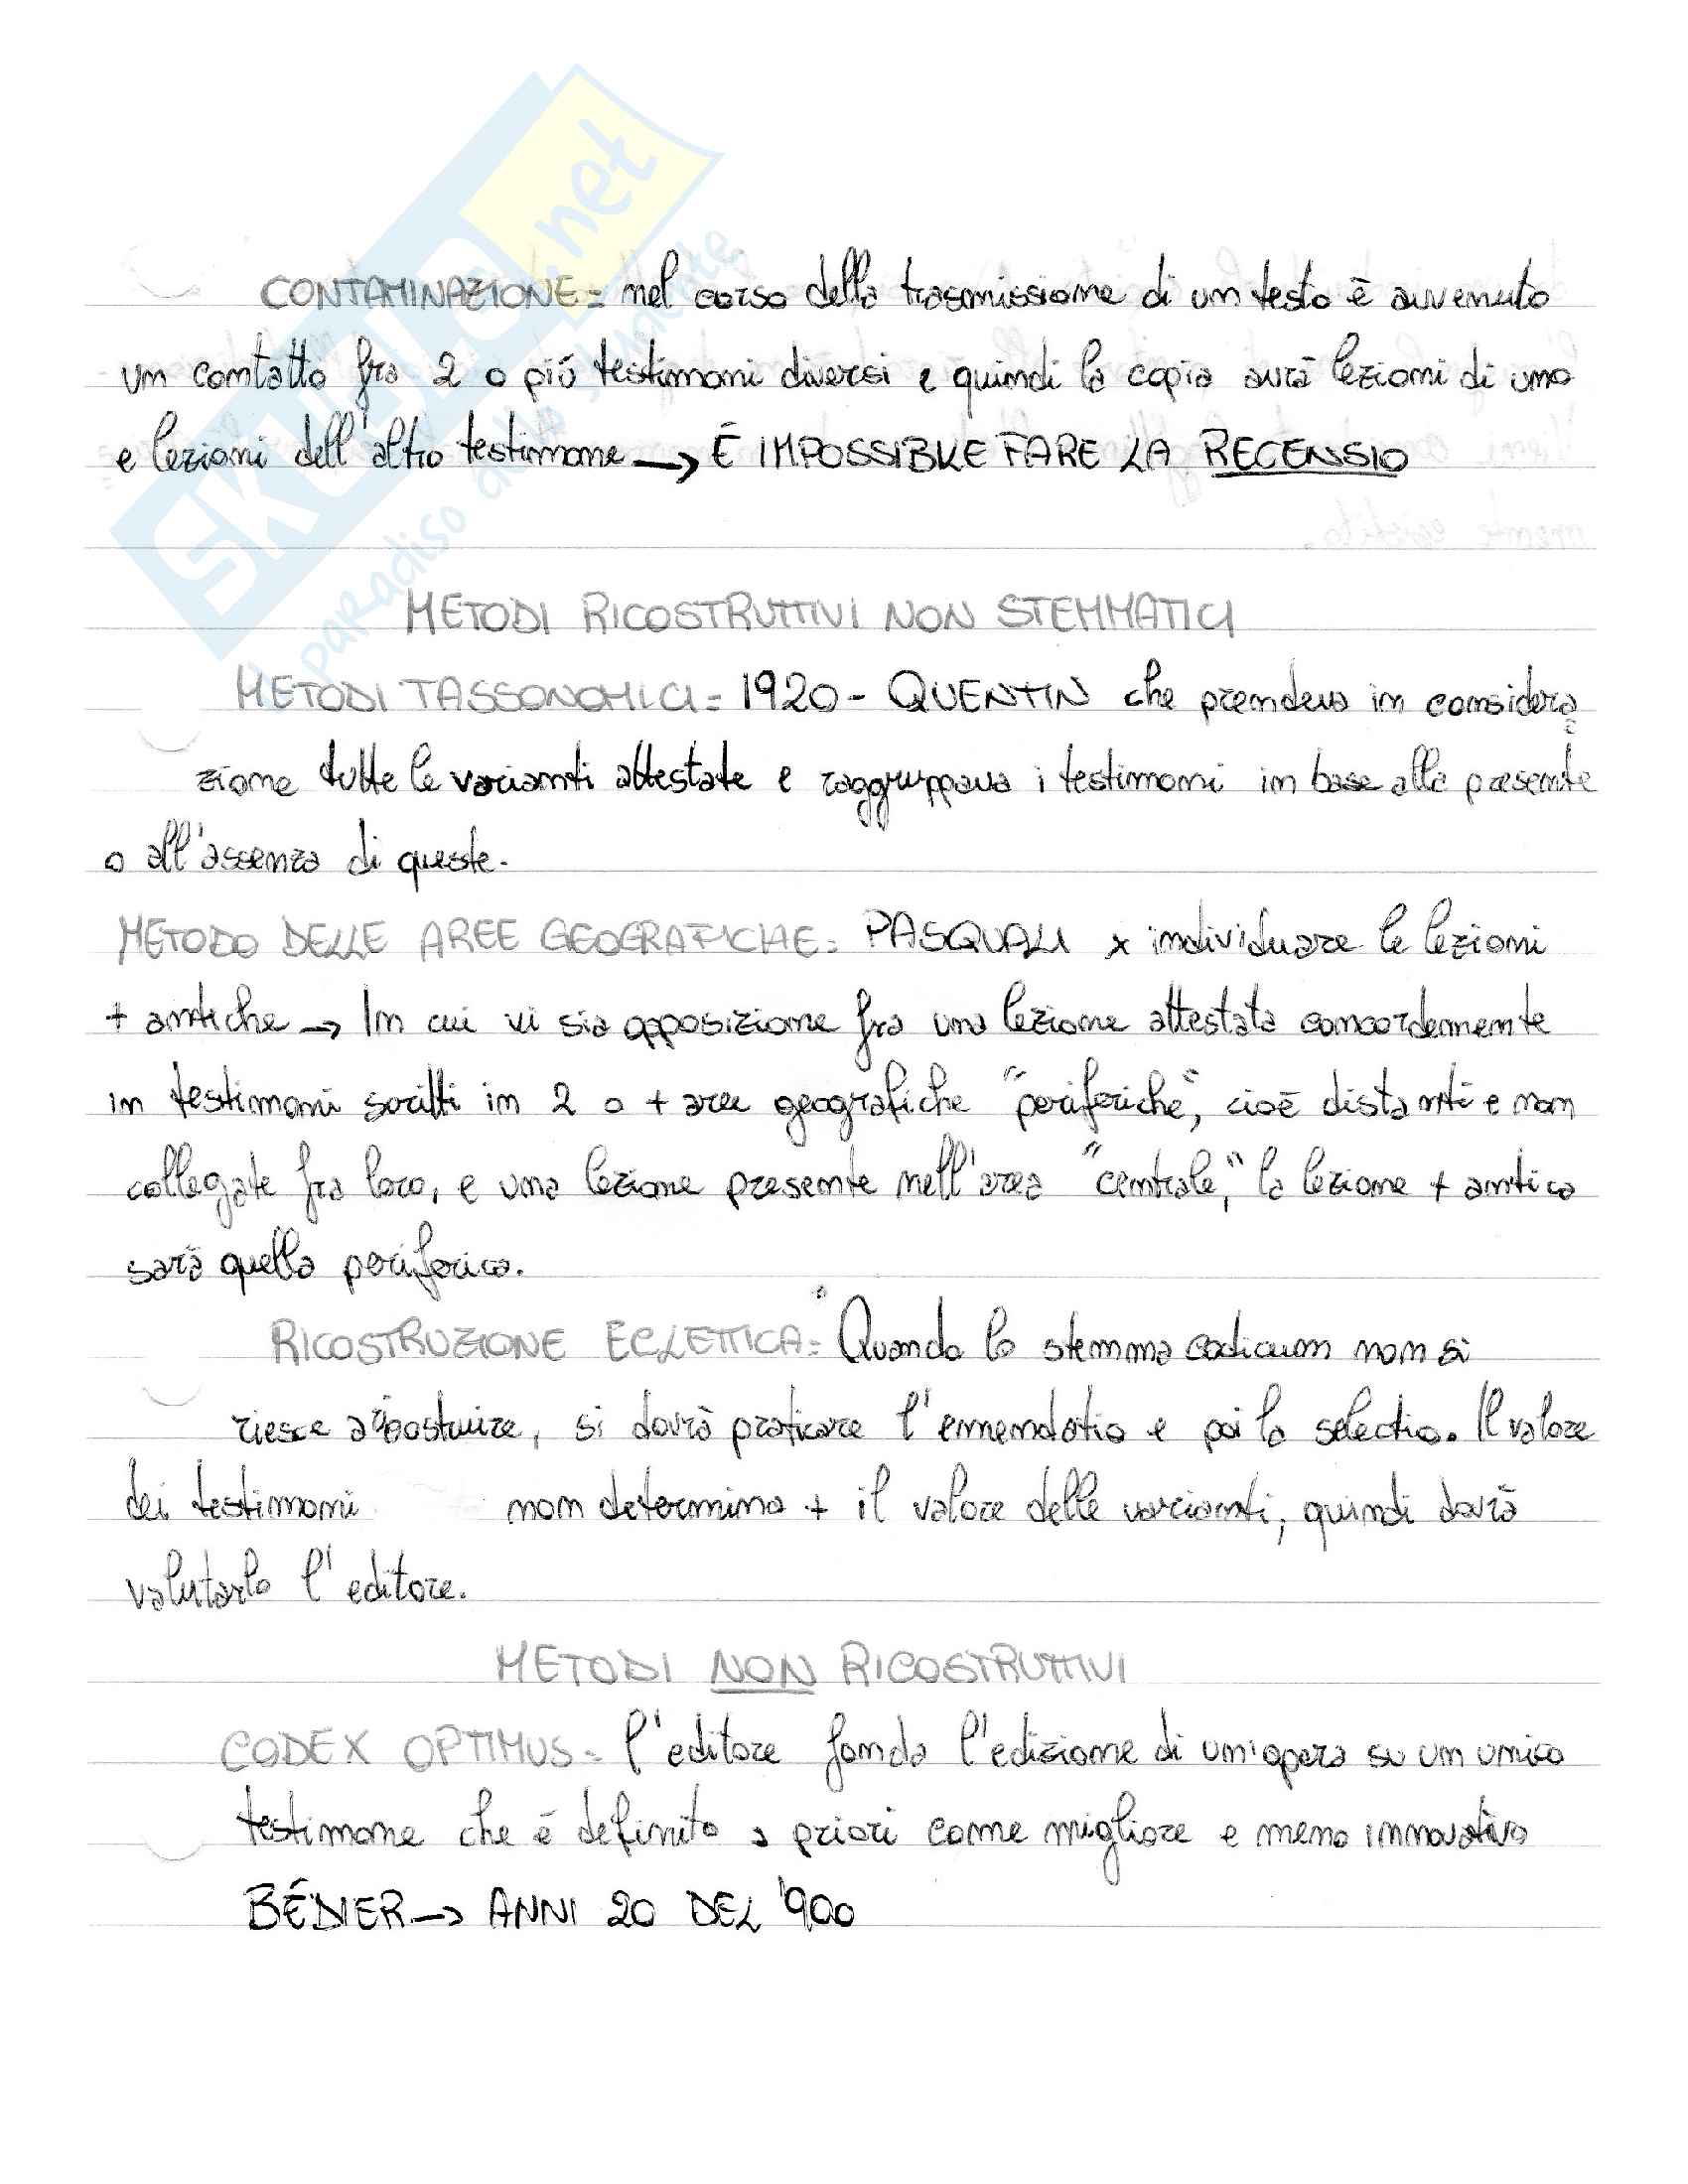 SKUOLA.net
paradiso dello studente
CONTAMINAZIONE = nel corso della trasmissione di un testo è avvenuto
un contatto fra 2 o più testimoni diversi e quindi la copia avrà lezioni di uno
e lezioni dell'altro testimone → É IMPOSSIBLE FARE LA RECENSIO
METODI RICOSTRUTTIVI NON STEMMATICI
METODI TASSONOMICI = 1920 - QUENTIN che prendeva in considera=
zione tutte le varianti attestate e raggruppava i testimoni in base alla presente
o all'assenza di queste.
METODO DELLE AREE GEOGRAFICHE = PASQUALI x individuare le lezioni
+ antiche → In cui vi sia opposizione fra una lezione attestata concordemente
in testimoni scritti in 2 o + aree geografiche "periferiche", cioè distanti e non
collegate fra loro, e una lezione presente nell'area "centrale," la lezione + antica
sarà quella periferica.
RICOSTRUZIONE ECLETTICA = Quando lo stemma codicum non si
riesce a ricostruire, si dovrà praticare l'emendatio e poi la selectio. Il valore
dei testimoni non determina + il valore delle varianti, quindi dovrà
valutarlo l'editore.
METODI NON RICOSTRUTTIVI
CODEX OPTIMUS = l'editore fonda l'edizione di un'opera su un unico
testimone che è definito a priori come migliore e meno innovativo
BÉDIER → ANNI 20 DEL '900